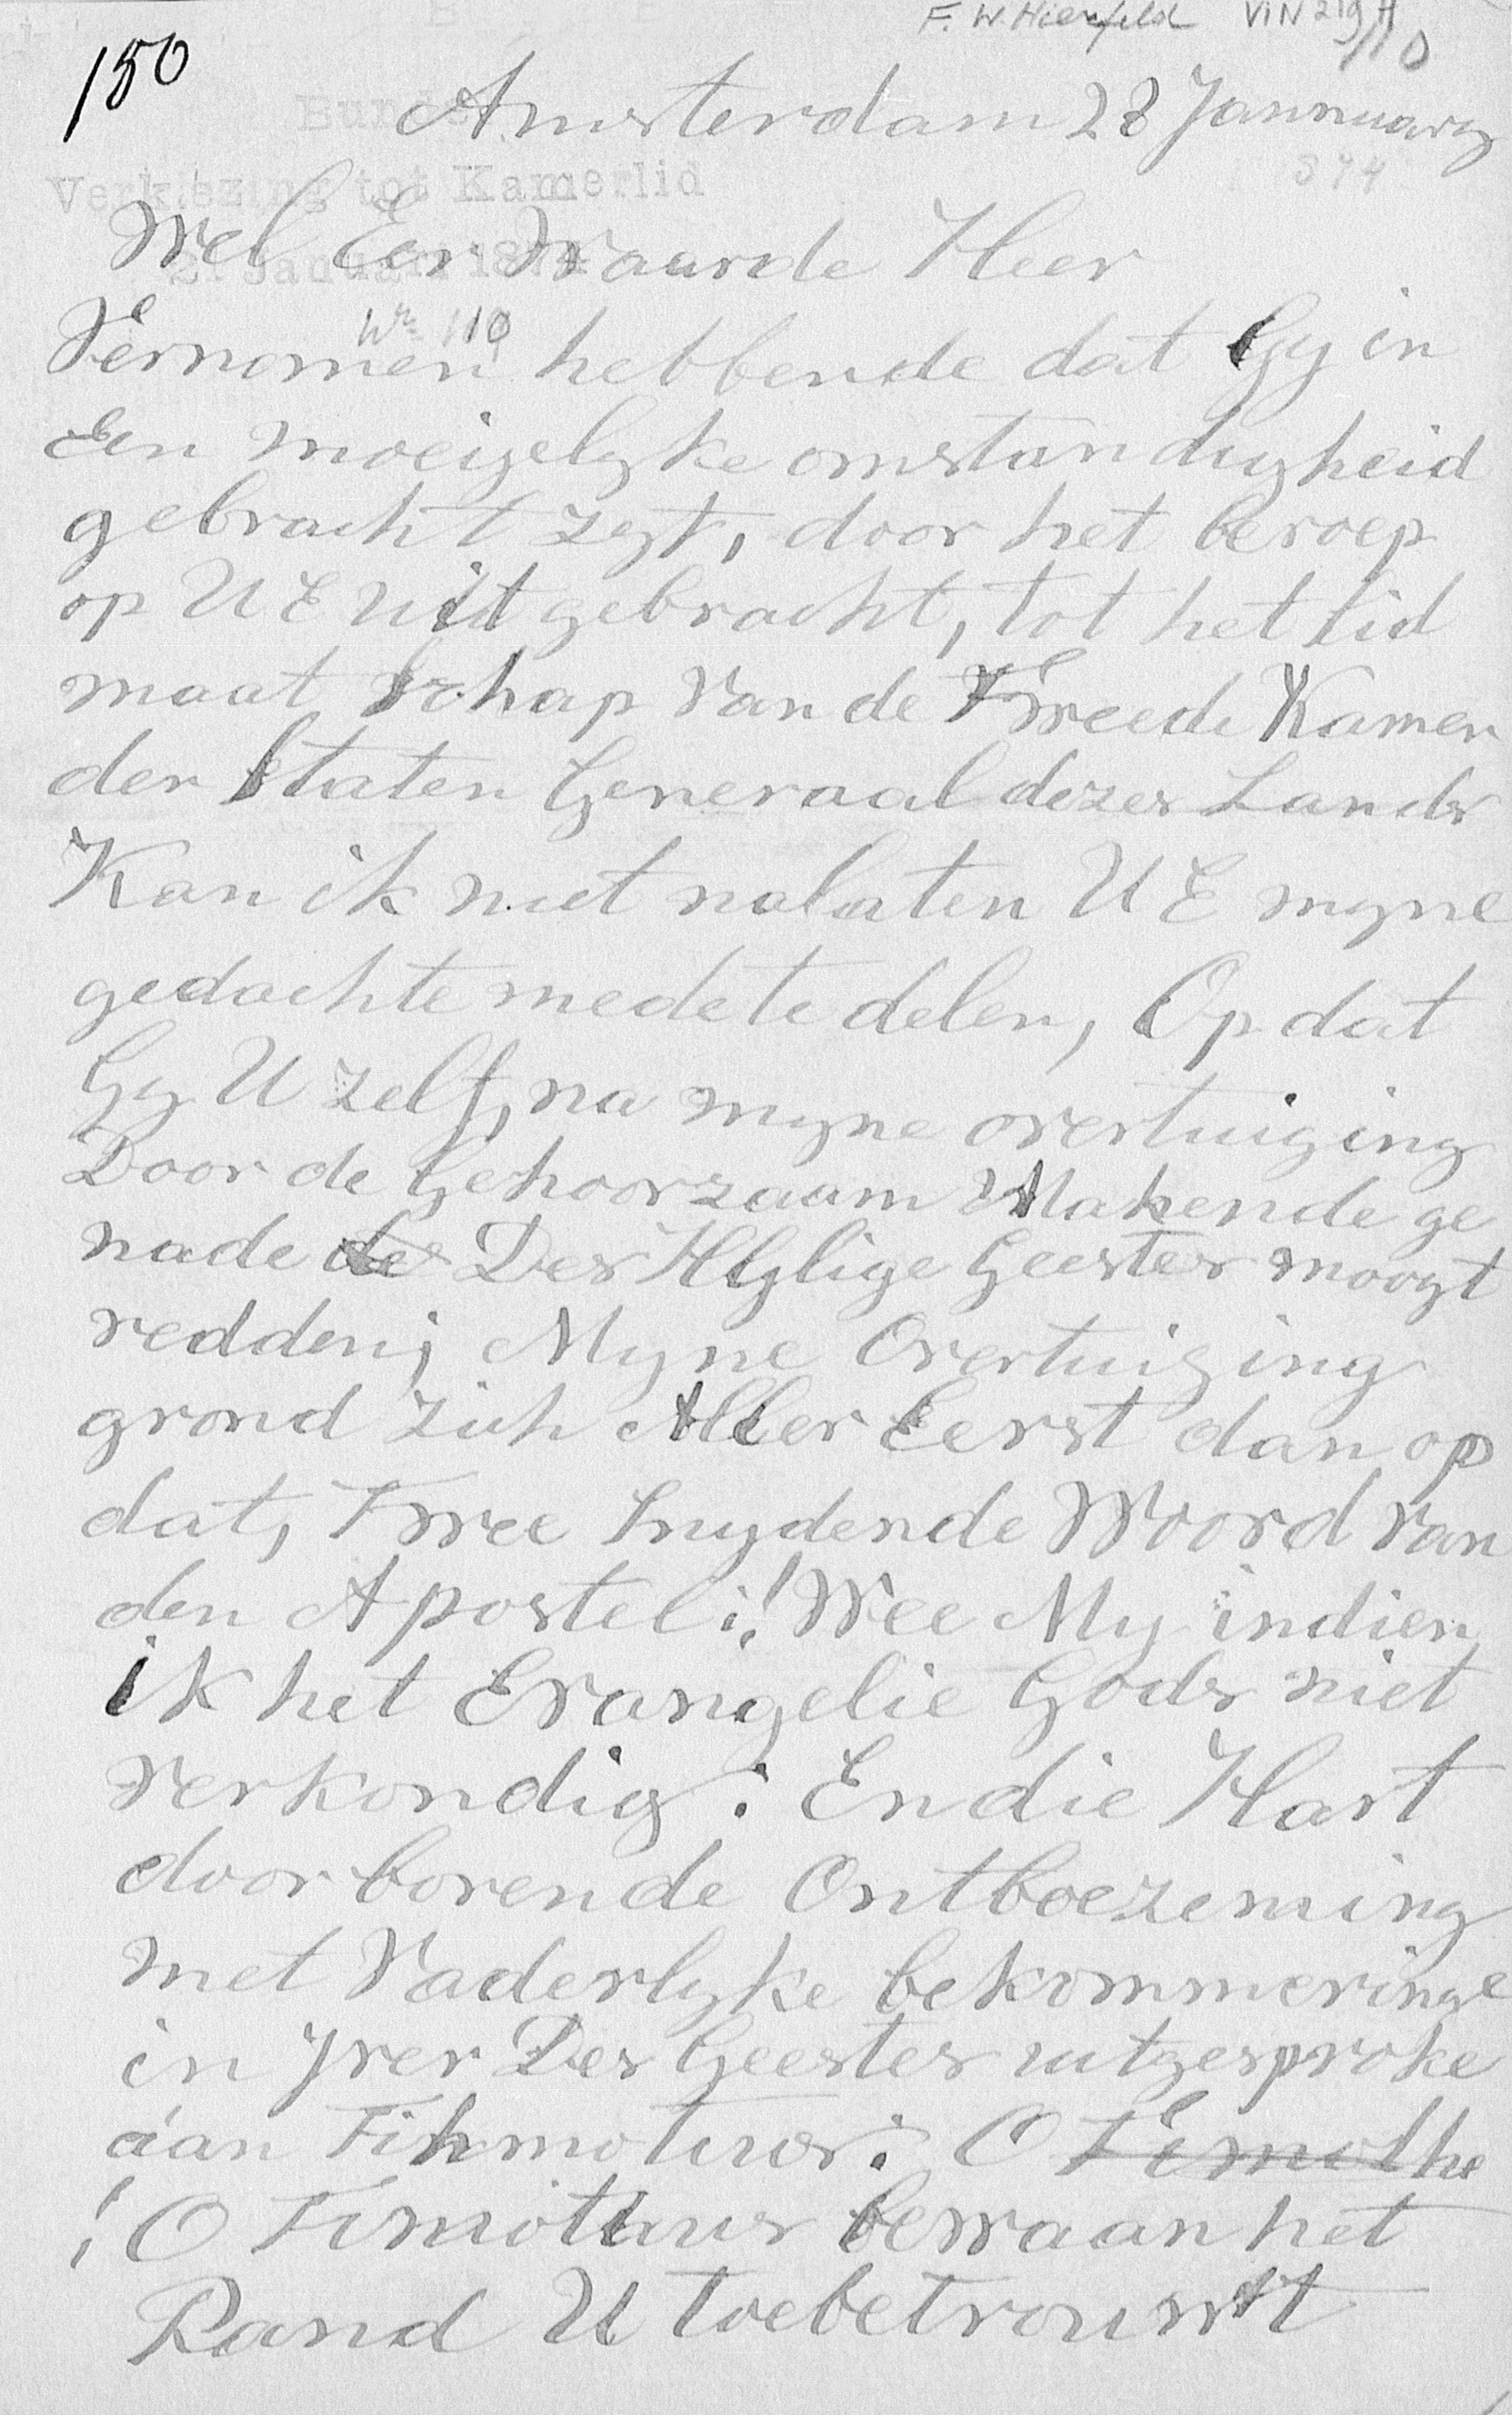 F. W. Hierfeld VIN 219 A
150
Amsterdam 28 Jannuary
874
Verkiezing tot Kamerlid
Wel Eer Waarde Heer
Vernomen hebbende dat Gy in
Een moeigelyke omstandigheid
gebracht zyt, door het beroep
op U E uit gebracht, tot het lid
maat Schap Van de Tweede Kamer
der Staten Generaal dezes Lands
Kan ik niet nalaten U E myne
gedachte mede te delen, Op dat
Gy U zelf, na myne overtuiging
Door de Gehoorzaam Makende ge
nade des Des Hylige Geestes moogt
redden; Myne Overtuiging
grond zich Aller Eerst dan op
dat, Twee Snydende Woord van
den Apostel;! Wee My indien
ik het Evangelie Gods niet
verkondig: En die Hart
door borende Ontboezeming
met Vaderlyke bekommeringe
in Yver Des Geestes uitgesproke
aan Tihmoteus: O Timothe
! O Timotheus bewaan het
Pand U toebetrouwt